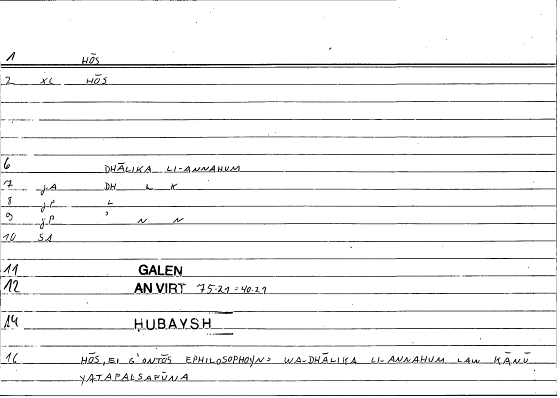 1 HŌS
2 XC HŌS
6 DHĀLIKA LI-ANNAHUM
7 J.A DH L K
8 J.P L
9 J.P ' N N
10 SA
11 GALEN
12 AN VIRT 75.21 = 40.21
14 ḤUBAYSH
16 HŌS, EI G'ONTŌS EPHILOSOPHOYN= WA-DHĀLIKA LI-ANNAHUM LAW KĀNŪ
YATAFALSAFŪNA